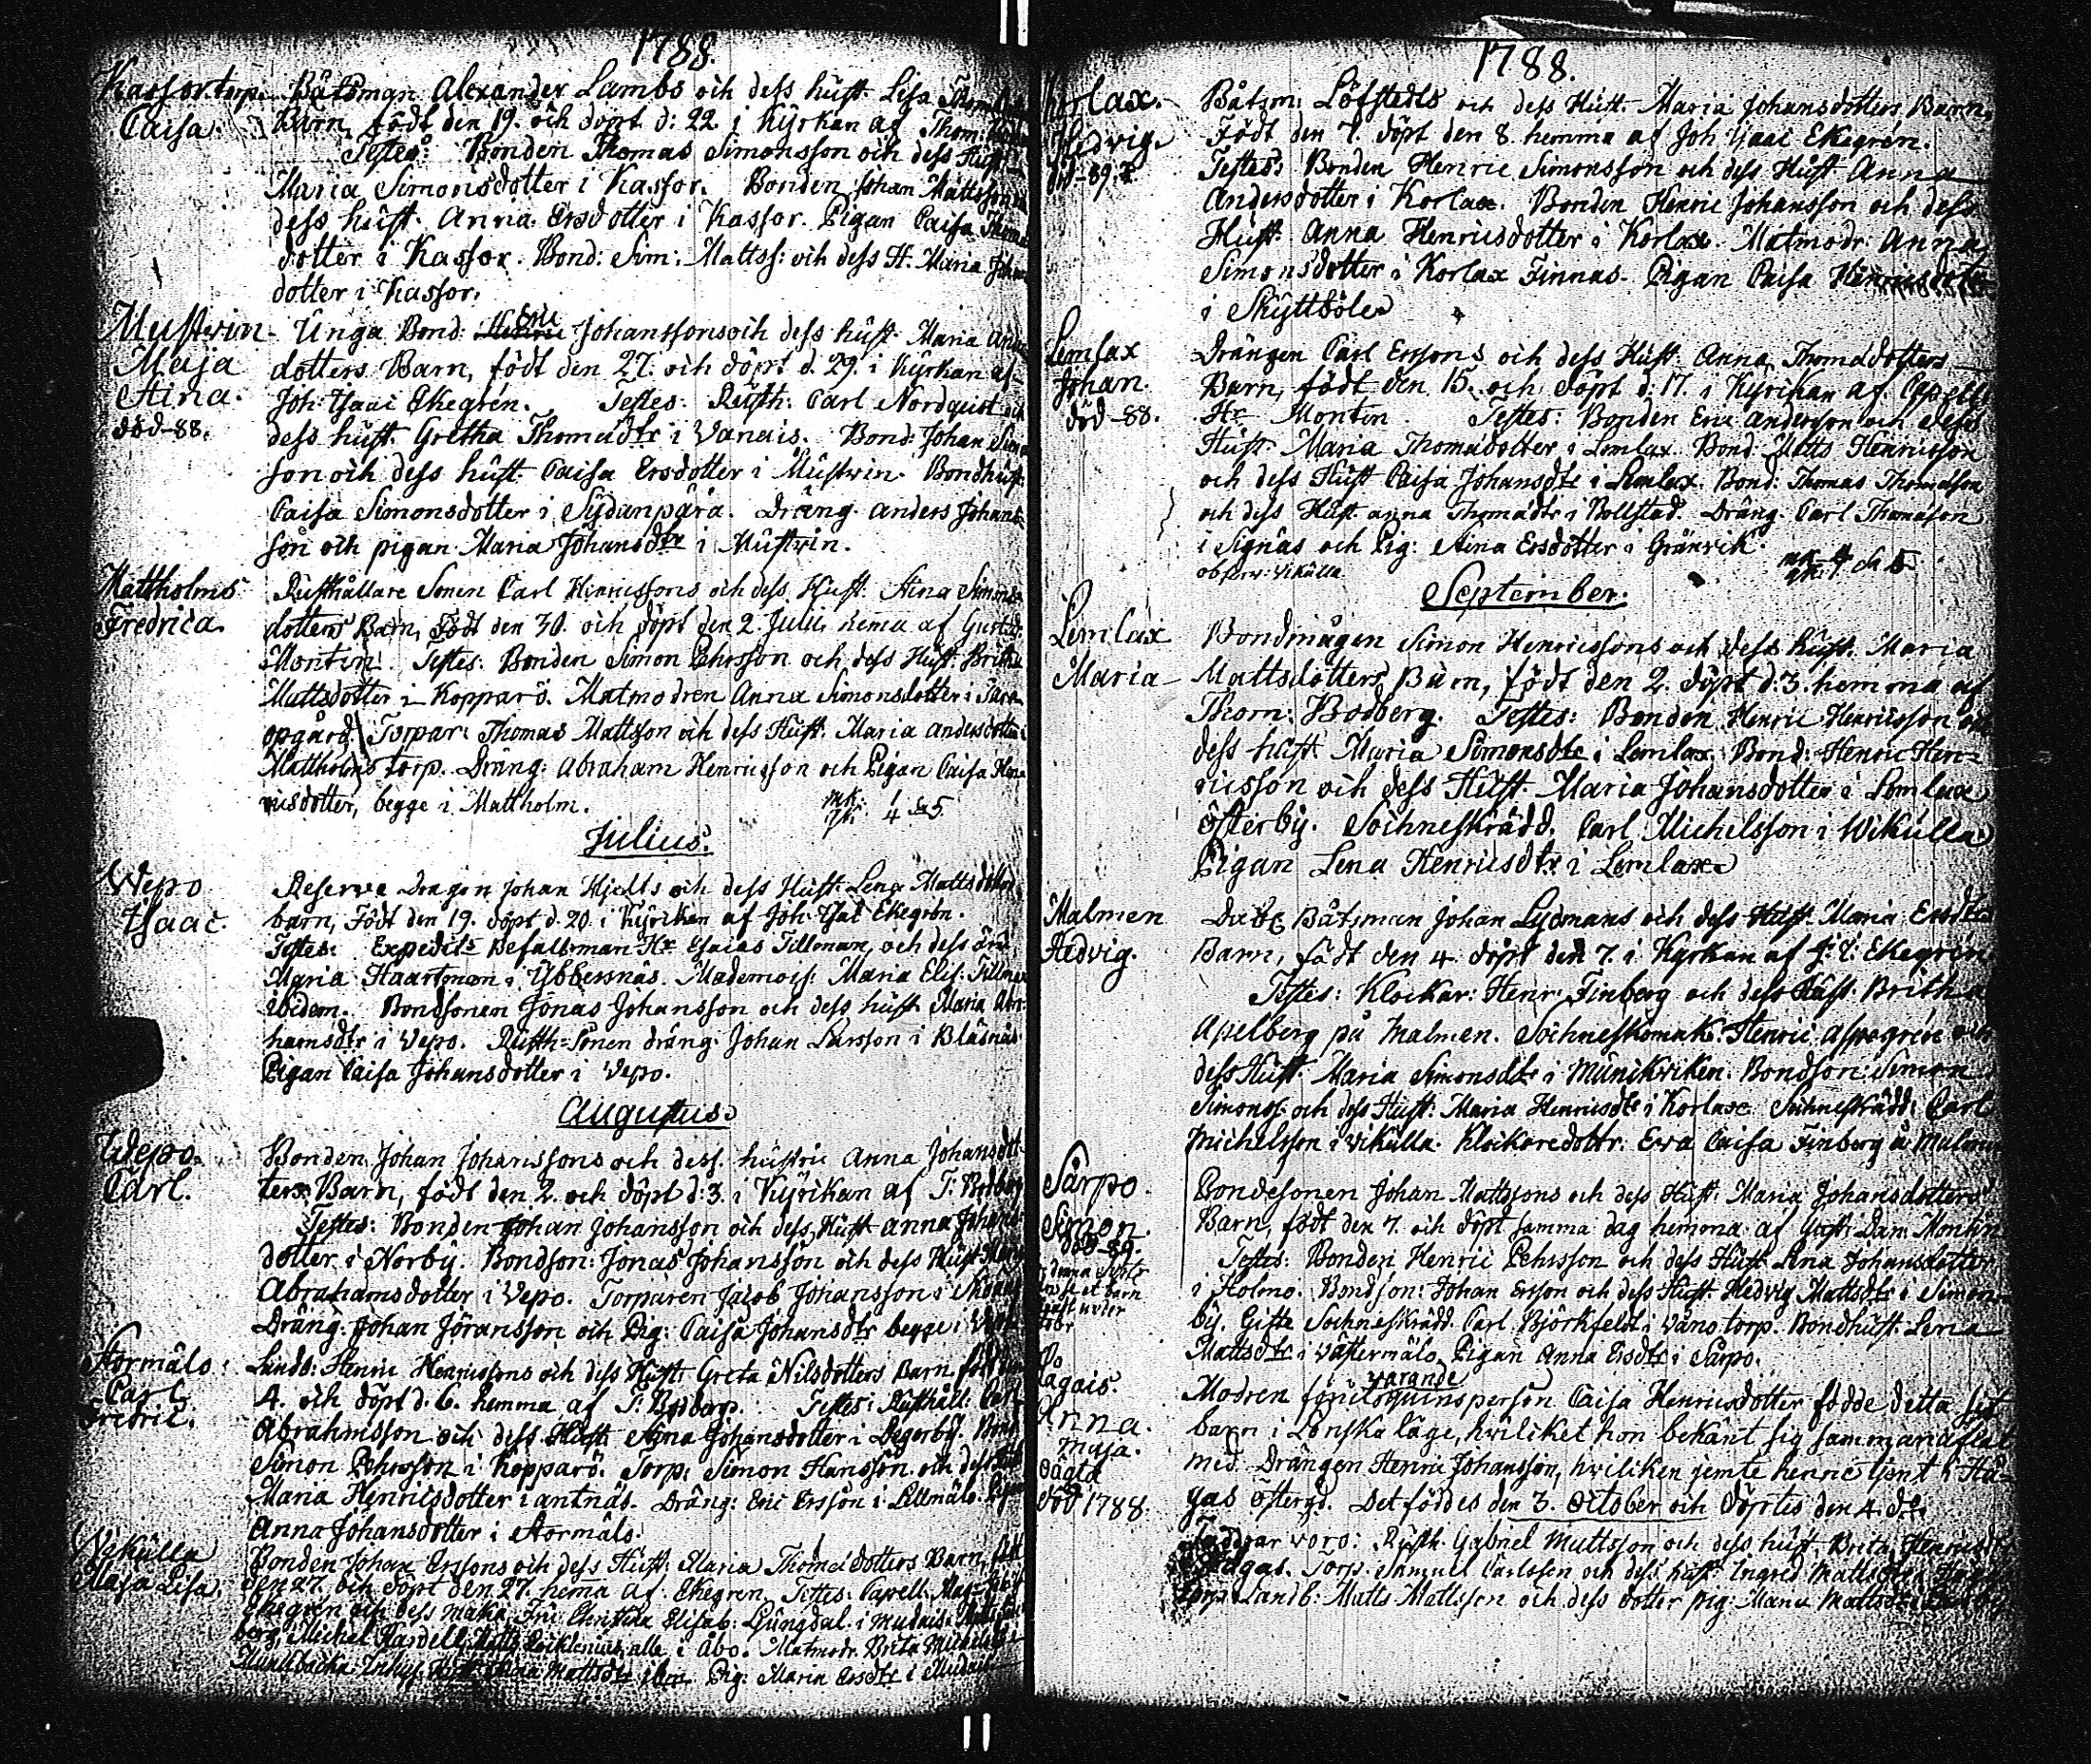 1788.
Kassor torp. Båtsman Alexander Lambs och dess hust. Lisa
Caisa. Barn, födt den 19. och döpt d: 22. i Kyrkan af Thom:
Testes: Bonden Thomas Simonsson och dess Hust.
Maria Simonsdotter i Kassor. Bonden Johan Mattsson
dess hust. Anna Ersdotter i Kassor. Pigan Caisa
dotter i Kassor. Bond: Sim: Mattss: och dess H. Maria
dotter i Kassor.
Mustwin Unga Bond: Eric Johanssons och dess hust. Maria
Maja dotters Barn, födt den 27. och döpt d. 29. i Kyrkan af
Stina. Joh: Isaac Ekegrén. Testes: Rusth: Carl Nordquist och
död-88. dess hust. Gretha Thomadtr i Vanais. Bond: Johan
son och dess hust. Caisa Ersdotter i Mustwin. Bondhust:
Caisa Simonsdotter i Sydänpärä. Dräng. Anders Johans
son och pigan Maria Johansdtr i Mustwin.
Mattholms Rusthållare Sonen Carl Hinricssons och dess Hust. Stina Simons
Fredrica. dotters Barn, Födt den 30. och döpt den 2. Julii hema af Gust:
Montin. Testes: Bonden Simon Pehrsson och dess Hust. Britha
Mattsdotter i Kopparö. Matmodren Anna Simonsdotter i
opgård. Torpar: Thomas Mattsson och dess Hust. Maria Andersdotter i
Mattholms torp. Dräng: Abraham Henricsson och Pigan Caisa Hen
ricsdotter, begge i Mattholm.
mk: 1
qk: 4 S:a 5
Julius.
Wepo Reserve Dragon Johan Hjelts och dess Hust. Lena Mattsdotters
Isaac. barn, Födt den 19. döpt d. 20. i Kyrckan af Joh: Isac Ekegrén.
Testes: Expedit: Befallsman Hr Esaias Tillman, och dess
Maria Haartman i Ybbersnäs. Mademois: Maria Elis: Tillman
ibidem. Bondsonen Jonas Johansson och dess hust. Maria Abra
hamsdtr i Vepo. Rusth-Sonen dräng: Johan Larsson i Bläsnäs
Pigan Caisa Johansdotter i Vepo.
Augustus.
Wepo. Bonden Johan Johanssons och dess hustru Anna Johansdot
Carl. ters Barn, födt den 2. och döpt d: 3. i Kyrckan af T: Bodberg
Testes: Bonden Johan Johansson och dess Hust. Anna Johans
dotter i Norby. Bondson: Jonas Johansson och dess Hust. Maria
Abrahamsdotter i Vepo. Torparen Jacob Johansson i
Dräng: Johan Jöransson och Pig: Caisa Johansdtr begge i Vepo
Stormälo Landb: Henric Henricssons och dess Hust. Greta Nilsdotters Barn, födt
Carl 4. och döpt d. 6. hemma af T: Bodberg. Testes: Rusthåll: Carl
Fredric. Abrahmsson och dess Hust. Stina Johansdotter i Degerby. Bond
Simon Pehrsson i Kopparö. Torp: Simon Hansson och dess Hust
Maria Henricsdotter i Antnäs. Dräng: Eric Ersson i Lillmälo.
Anna Johansdotter i Stormälo.
Wikulla Bonden Johan Ersons och dess Hust. Maria Thomædotters Barn, födt
Maja Lisa. den 27. och döpt den 27. hema af Ekegren. Testes: Capell: Mag:
Ekegrén och dess maka Fru Christina Elisab: Ljungdal i Mudais.
berg, Michel alle i Åbo. Matmodr Brita
Pig: Maria Ersdtr i Mudais
1788.
Korlax. Båtsm: Löfstedts och dess Hust. Maria Johansdotters Barn,
Hedvig. Födt den 7. döpt den 8. hemma af Joh Isaac Ekegrén.
död-89. Testes: Bonden Henric Simonsson och dess Hust. Anna
Andersdotter i Korlax. Bonden Henric Johansson och dess
Hust. Anna Henricsdotter i Korlax. Matmodr: Anna
Simonsdotter i Korlax Finnas. Pigan Caisa Henricsdotter
i Skyttböle
Lemlax Drängen Carl Erssons och dess Hust. Anna Thomædotters
Johan. Barn, födt den 15. och döpt d: 17. i Kyrckan af Capells
död-88. Hr Montin. Testes: Bonden Eric Andersson och dess
Hust. Maria Thomædotter i Lemlax. Bond. Matts Henricsson
och dess Hust Caisa Johansdtr i Lemlax. Bond: Thomas Thomasson
och dess Hust. Anna Thomædtr i Bollstad. Dräng. Carl Thomasson
i Signäs och Pig: Stina Ersdotter i Gränvik.
observ: Wikulla
September.
Lemlax Bondmågen Simon Henricssons och dess hust. Maria
Maria Mattsdotters Barn, födt den 2. döpt d: 3. hemma af
Thom: Bodberg. Testes: Bonden Henric Henricsson och
dess hust. Maria Simonsdtr i Lemlax. Bond: Henric Hen=
ricsson och dess Hust. Maria Johansdotter i Lemlax
österby. Sochneskrädd. Carl Michelsson i Wikulla
Pigan Lena Henricsdtr i Lemlax
Malmen Båtsman Johan Lydmans och dess Hust. Maria Ersdtrs
Hedvig. Barn, födt den 4. döpt den 7. i Kyrkan af J: I: Ekegrén
Testes: Klockar: Henr: Finberg och dess Hust: Britha
Apelberg på Malmen. Sochneskomak: Henric Aspegrén och
dess Hust. Maria Simonsdtr i Munckviken. Bondson: Simon
Simonss: och dess Hust: Maria Henricsdtr i Korlax. Sochneskrädd: Carl
Michelsson i Vikulla. Klockaredottr: Eva Caisa Finberg å Malmen
Sårpo. Bondesonen Johan Mattssons och dess Hust: Maria Johansdotters
Simon. Barn, födt den 7. och döpt samma dag hemma af Gust: Dan: Montin
död-89. Testes: Bonden Henric Pehrsson och dess Hust Lena Johansdotter
i Holmo. Bondson: Johan Ersson och dess Hust. Hedvig Mattsdtr i Simon
by. Gifte Sochneskrädd. Carl Björkfeldt i Våno torp. Bondhust. Lena
Mattsdtr i Västermälo. Pigan Anna Ersdtr i Sårpo.
varande
Modren förut qvinsperson Caisa Henricsdotter födde detta sit
Anna barn i Lönska läge, hvilcket hon bekänt sig sammanaflat
Maja. med Drängen Henric Johansson, hvilcken jemte henne tjent i Ha=
oägta
död 1788. gas Östergd. Det föddes den 3. October och döptes den 4. d:o.
Faddrar voro: Rusth. Gabriel Mattsson och dess hust. Brita Henricsdtr
Torp. Samuel Carlsson och dess hust. Ingred Mattsdtr i
Landb: Matts Mattsson och dess dotter pig: Maria Mattsdtr